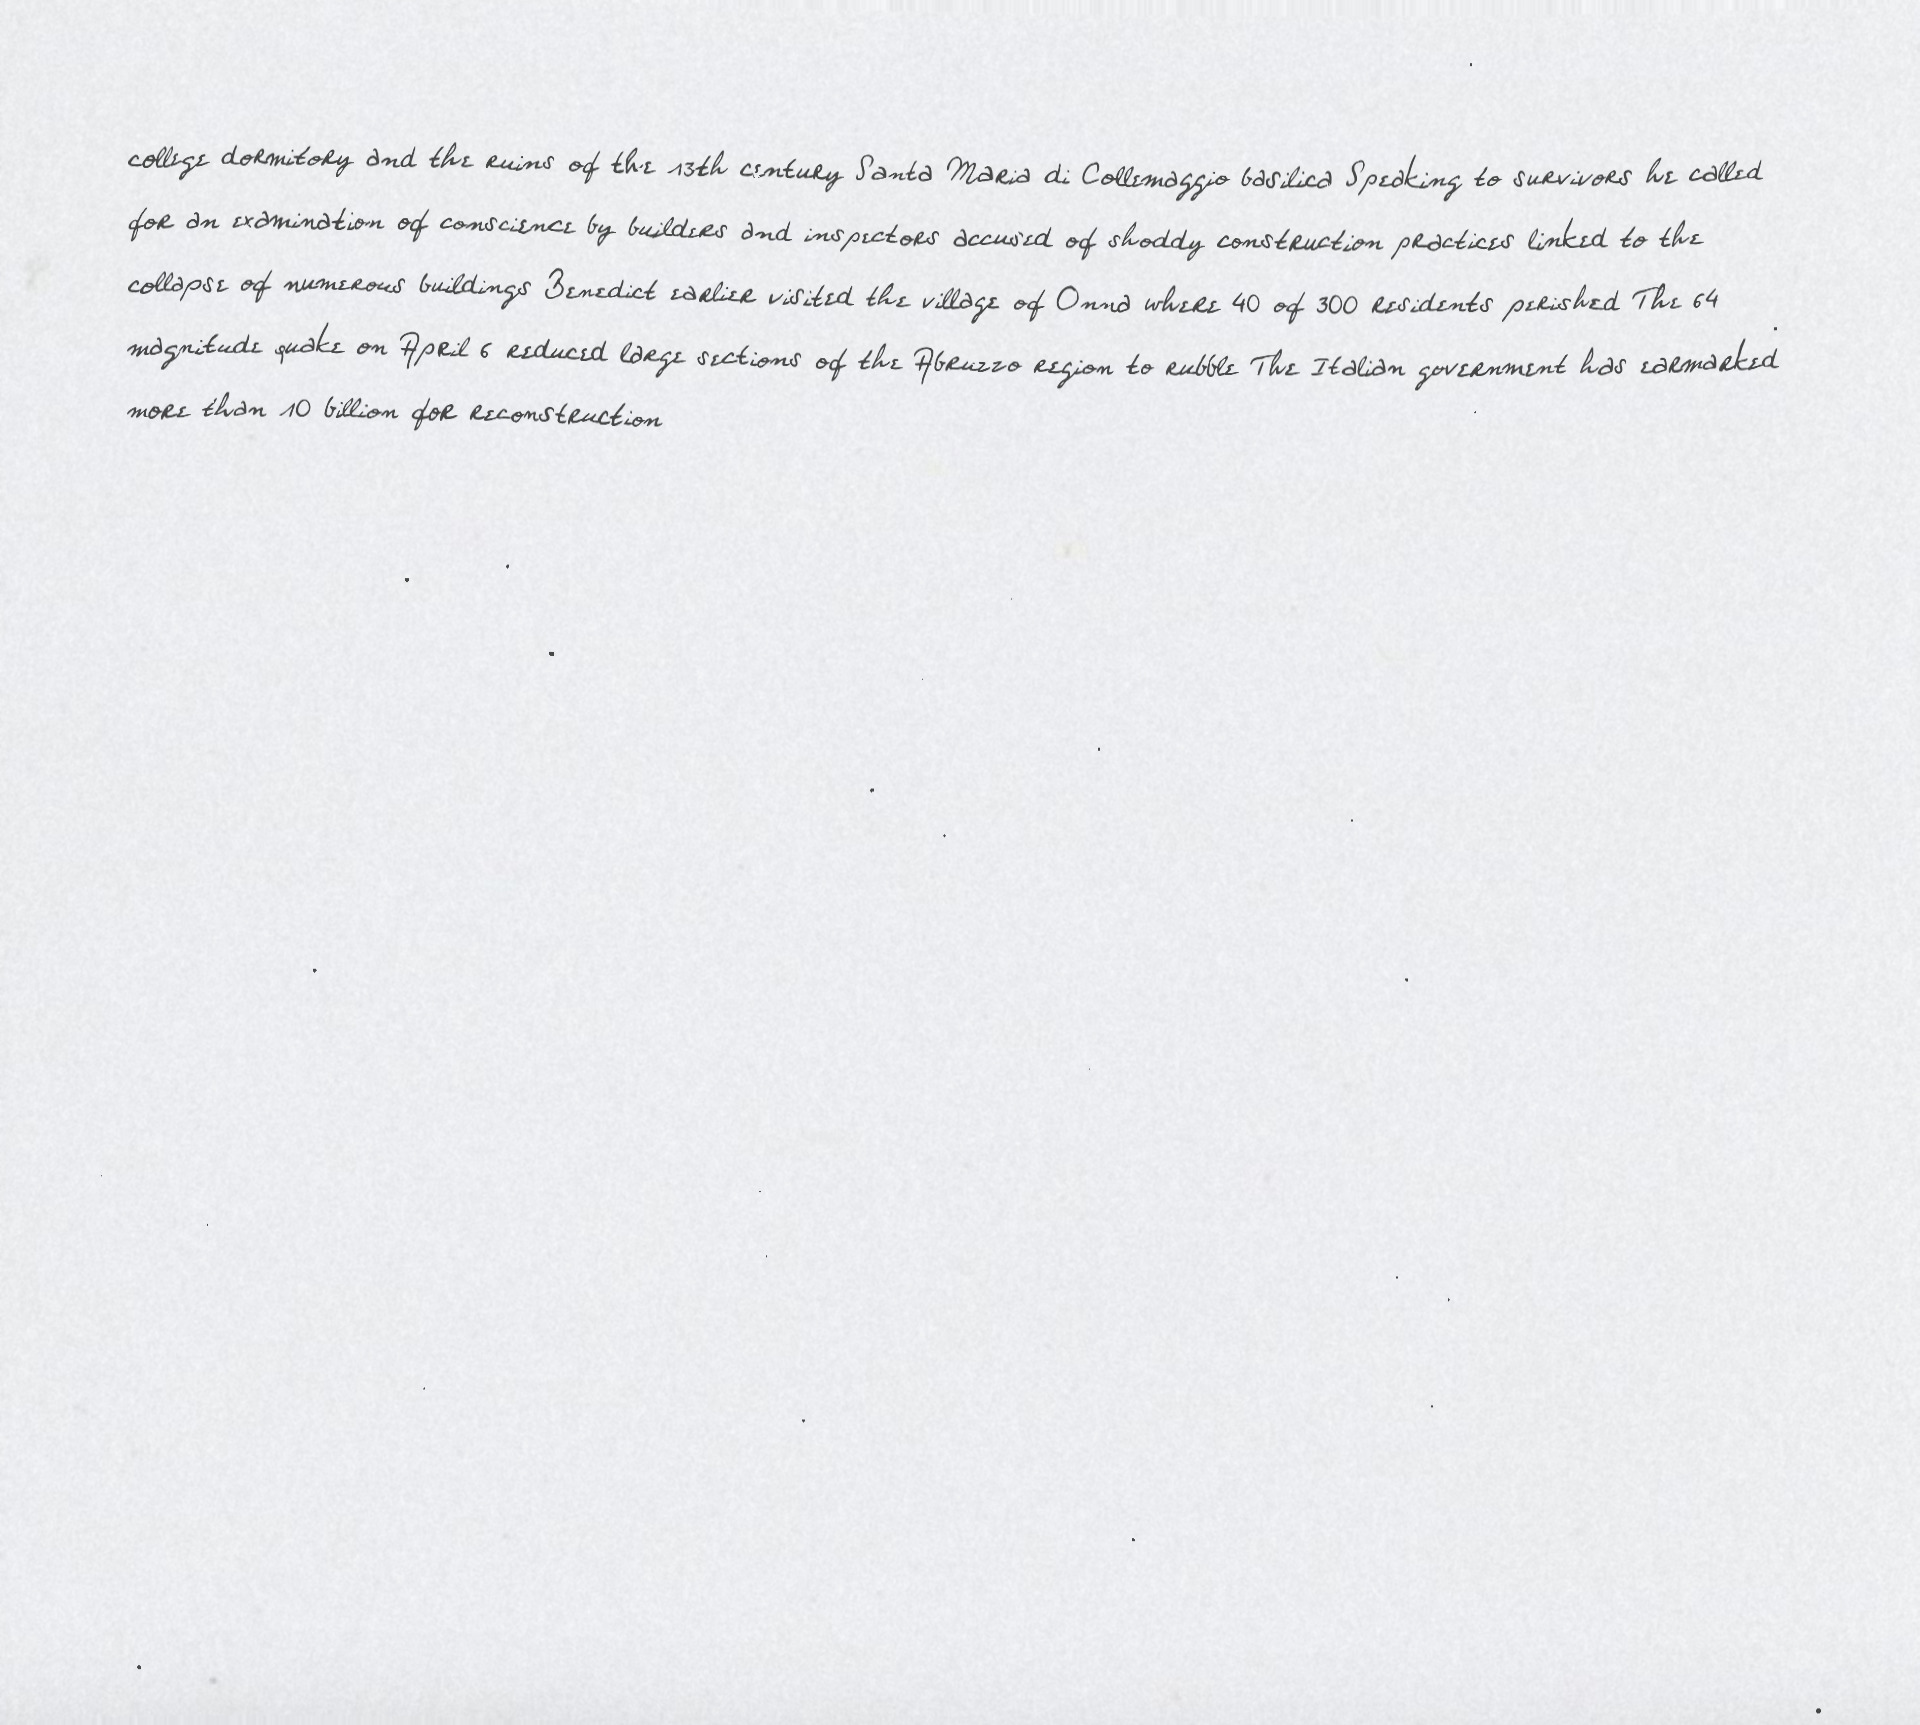 college dormitory and the ruins of the 13th century Santa Maria di Collemaggio basilica Speaking to survivors he called
for an examination of conscience by builders and inspectors accused of shoddy construction practices linked to the
collapse of numerous buildings Benedict earlier visited the village of Onna where 40 of 300 residents perished The 64
magnitude quake on April 6 reduced large sections of the Abruzzo region to rubble The Italian government has earmarked
more than 10 billion for reconstruction